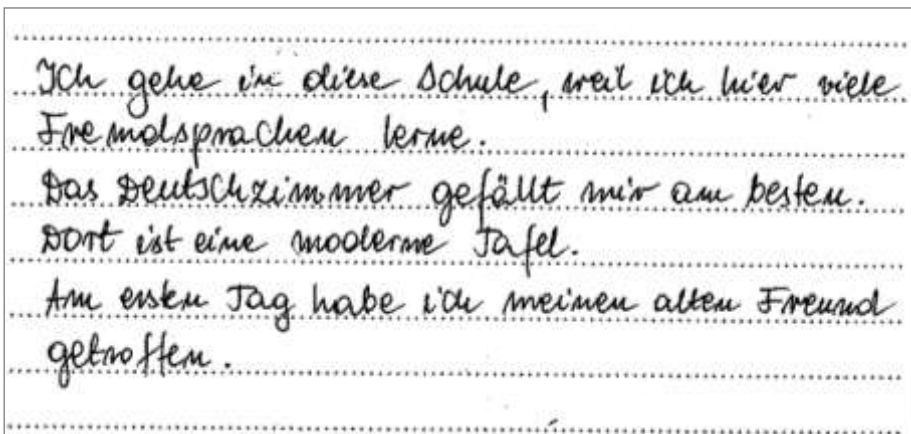 Ich gehe in diese Schule, weil ich hier viele
Fremdsprachen lerne.
Das Deutschzimmer gefällt mir am besten.
Dort ist eine moderne Tafel.
Am ersten Tag habe ich meinen alten Freund
getroffen.